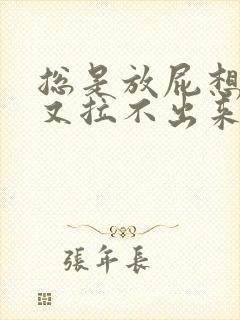 总是放屁想
又拉不出来
張年長